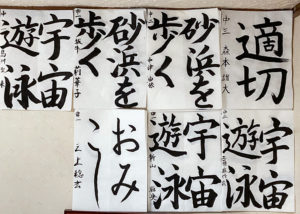 適切
中三 森本 雄大
砂浜を
歩く
砂浜を
歩く
宇宙
遊泳
宇宙
遊泳
宇宙
遊泳
おみ
こし